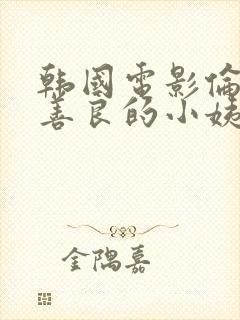 韩國电影倫
善良的小姨
金隅嘉